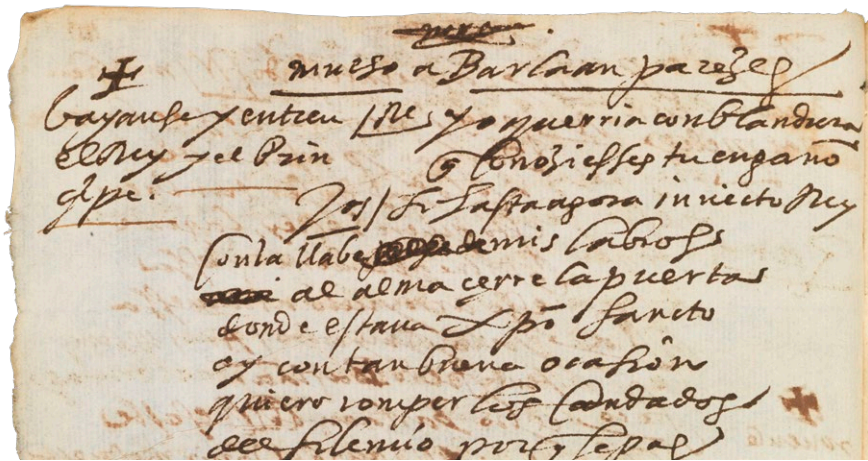 mucho a Barlaan pareçes
bayanse y entren
el Rey y el Prin
çipe.
Re/ yo querria con blandura
q conoziesses tu engaño
Jos/ Si hasta agora inuicto Rey
con la llabe de mis labios
al alma cerre la puerta
donde estaua Xpo sancto
oy con tan buena ocasion
quiero romper los candados
del silencio porq sepas